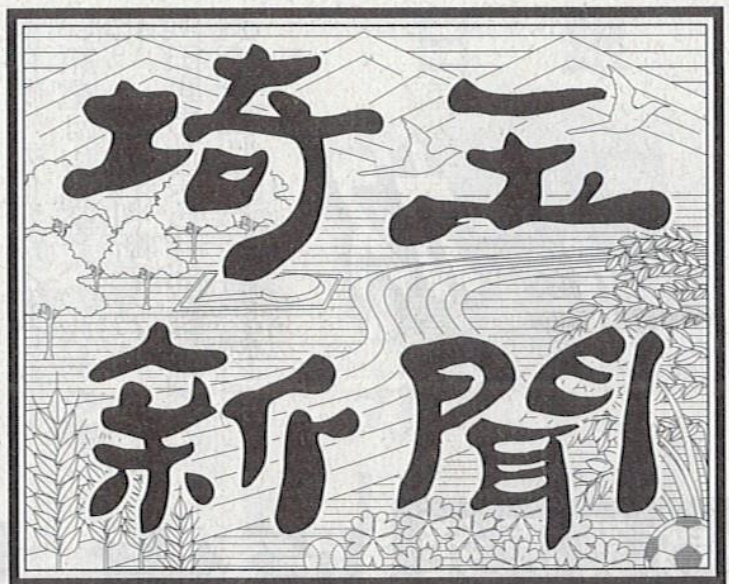 埼玉
新聞